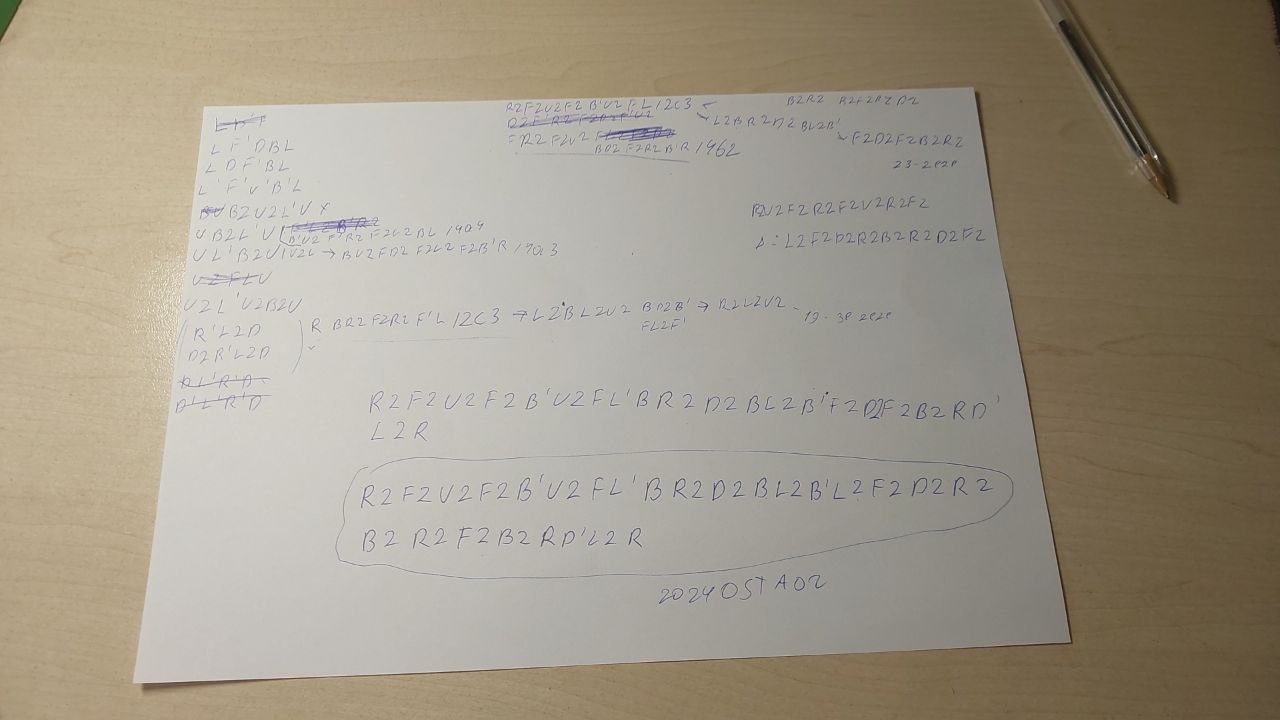 L F'DBL
L DF'BL
L'F'U'B'L
B2U2L'U x
UB2L'U B'U2 F2U2BL 1904
UL'B2U U2L → BU2FD2 F2L2 F2B'R 1903
U2L'U2B2U
R'L2D
D2R'L2D
R BR2F2R2F'L 12C3 → L2BL2U2 BD2B' → R2L2U2
FL2F'
19-
R2F2U2F2B'U2FL 12C3
FR2F2U2F
BD2F2R2B'R 1962
L2BR2D2BL2B'
B2R2 R2F2R2D2
F2D2F2B2R2
23-
RU2F2R2F2U2R2F2
L2F2D2R2B2R2D2F2
R2F2U2F2B'U2FL'BR2D2BL2B'F2D2F2B2RD'
L2R
R2F2U2F2B'U2FL'BR2D2BL2B'L2F2D2R2
B2R2F2B2RD'L2R
2024OSTA02